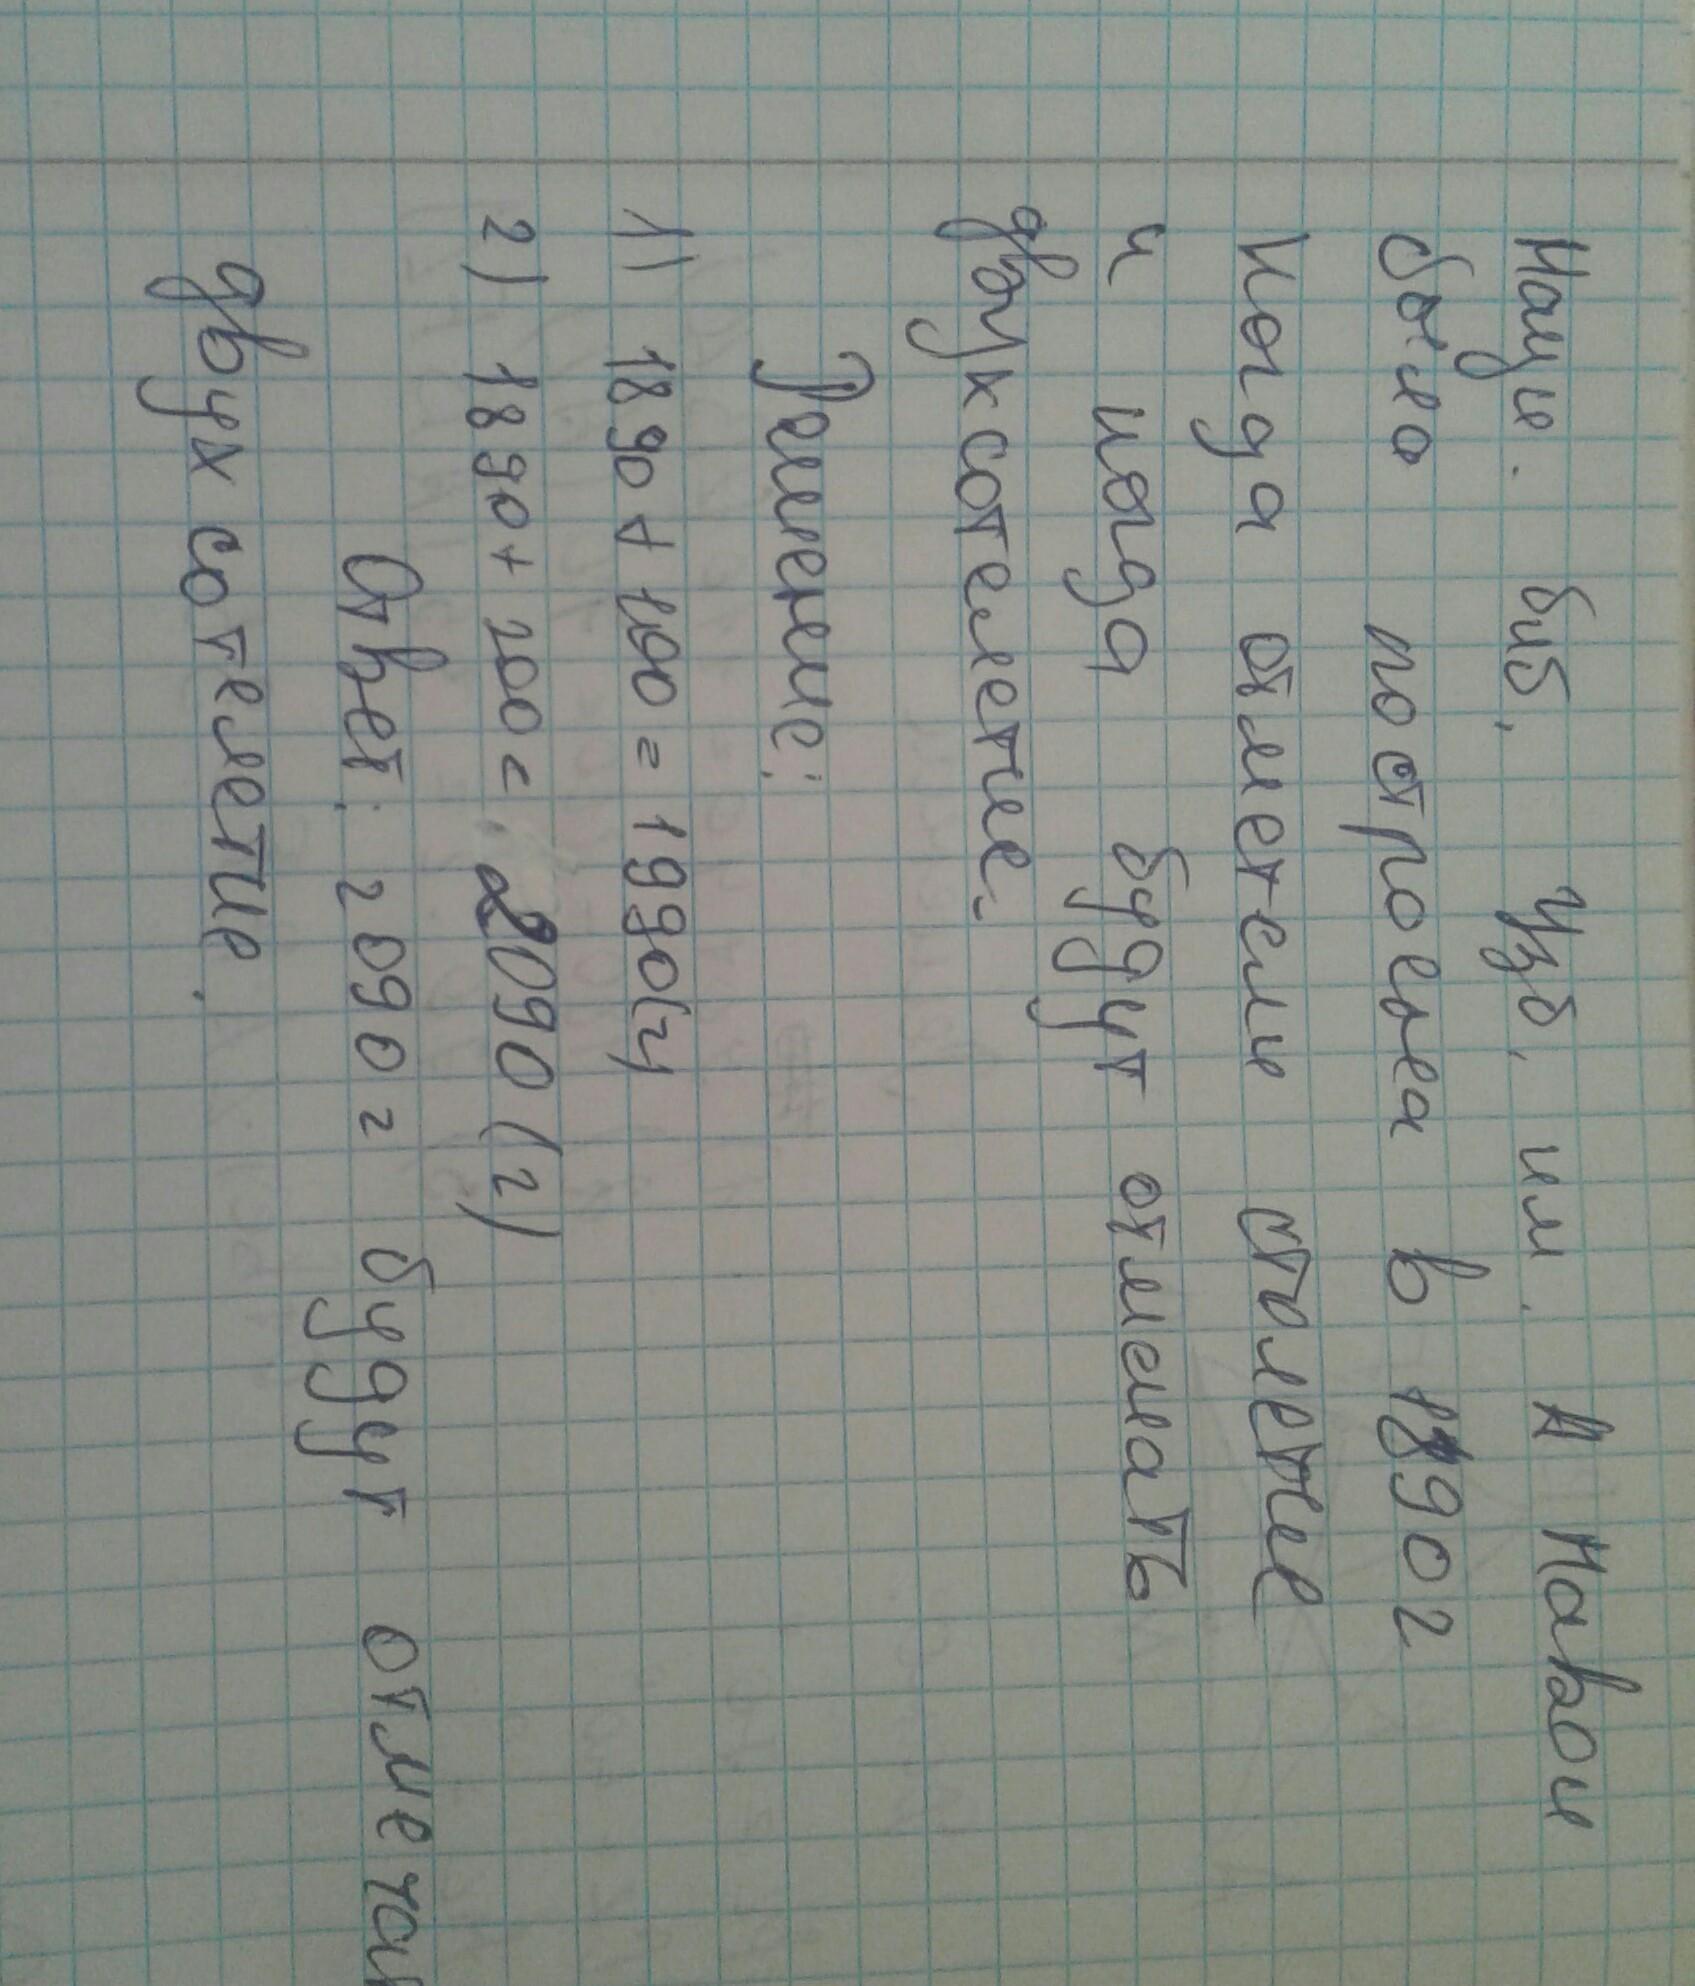 Наци. биб. Узб. им. А Навои
было построена в 1890г
когда отметели столетие
и когда будут отмечать
двухсотелетие.
Решение:
1) 1890 + 100 = 1990(г)
2) 1890 + 200 = 2090 (г)
Ответ: 2090 г будут отмечат
двухсотелетие.